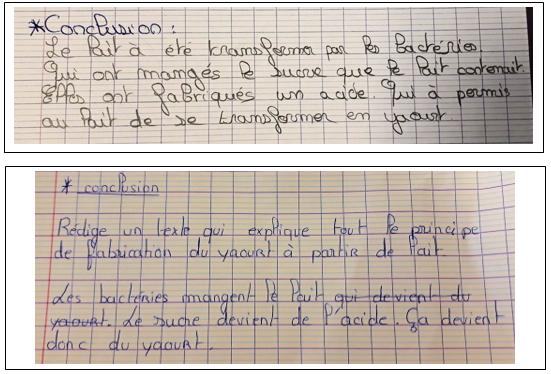 *Conclusion :
Le lait à été transformer par les bactéries.
Qui ont mangés le sucre que le lait contenuit.
Elles ont fabriqués un acide. Qui à permis
au lait de se transformer en yaourt.
* conclusion
Rédige un texte qui explique tout le principe
de fabrication du yaourt à partir de lait.
Les bactéries mangent le lait qui devient du
yaourt. Le sucre devient de l'acide. Ça devient
donc du yaourt.